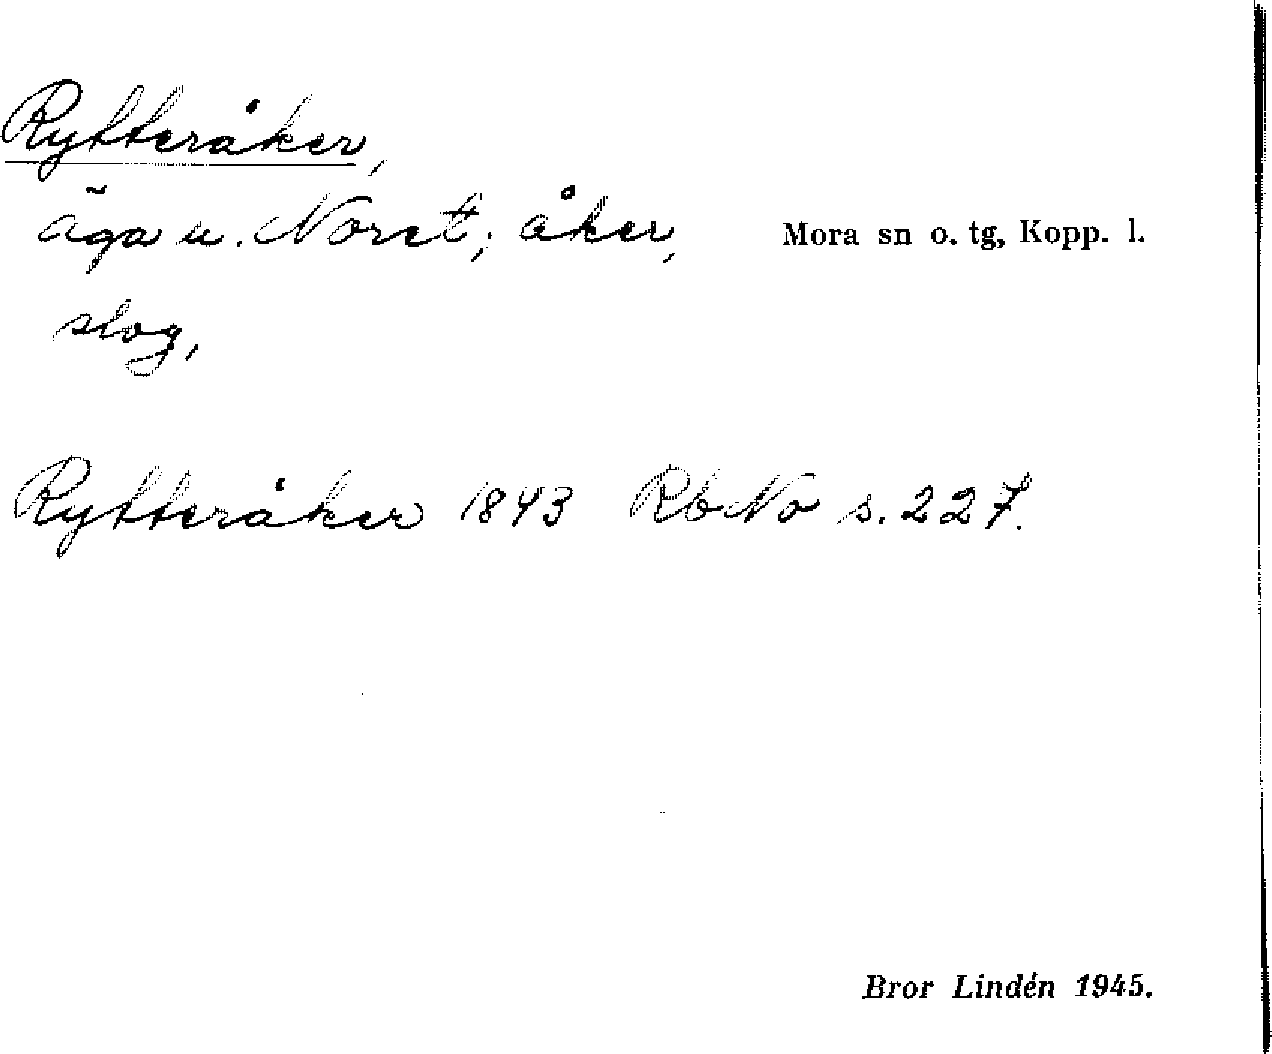 Rytteråker,
äga u. Noret; åker,
Mora sn o. tg, Kopp. l.
slog,
Rytteråker 1843 RbNo s. 227.
Bror Lindén 1945.